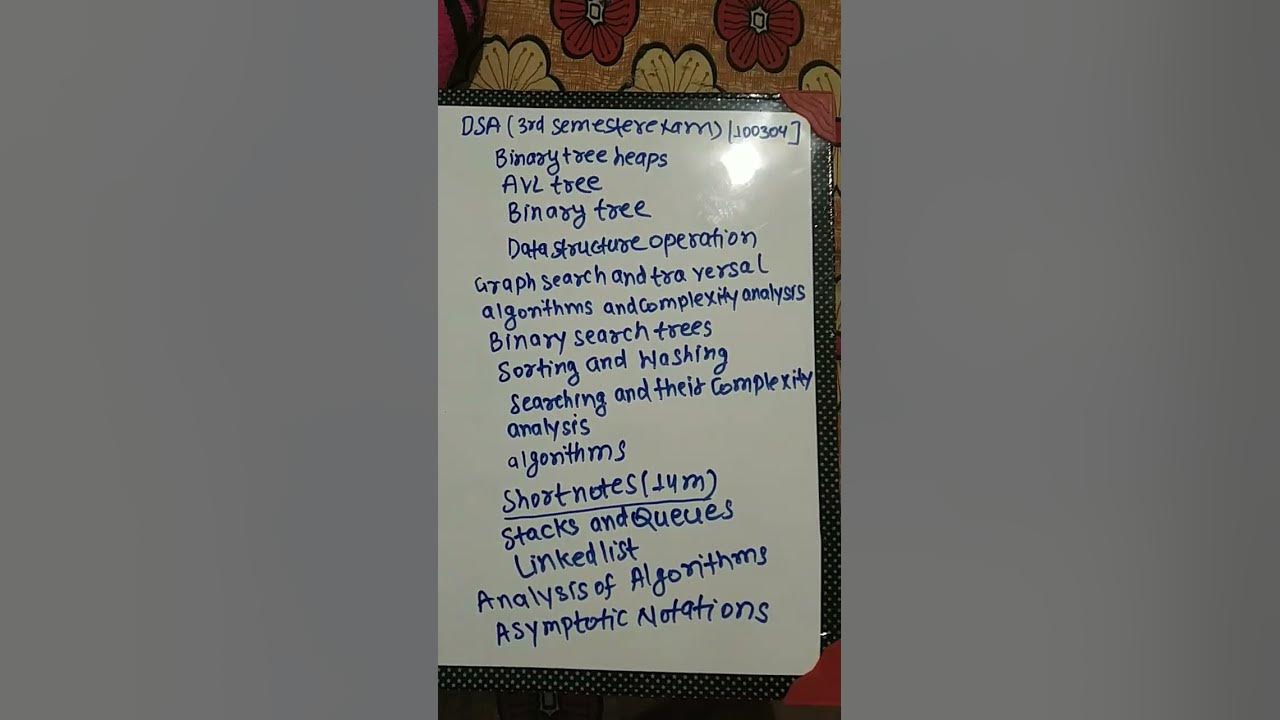 DSA (3rd semester exam) [100304]
Binary tree heaps
AVL tree
Binary tree
Data structure operation
Graph search and traversal
algorithms and complexity analysis
Binary search trees
Sorting and Hashing
Searching and their complexity
analysis
algorithms
Short notes (14m)
Stacks and Queues
Linked list
Analysis of Algorithms
Asymptotic Notations